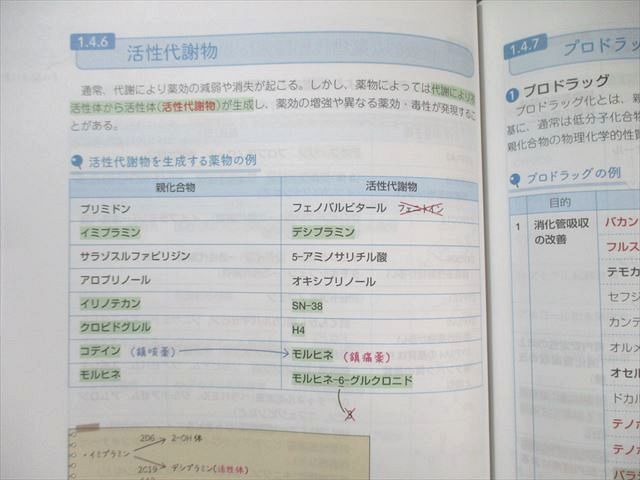 1.4.6 活性代謝物
通常、代謝により薬効の減弱や消失が起こる。しかし、薬物によっては代謝により不
活性体から活性体(活性代謝物)が生成し、薬効の増強や異なる薬効・毒性が発現するこ
とがある。
活性代謝物を生成する薬物の例
親化合物 活性代謝物
プリミドン フェノバルビタール フェニトイン
イミプラミン デシプラミン
サラゾスルファピリジン 5-アミノサリチル酸
アロプリノール オキシプリノール
イリノテカン SN-38
クロピドグレル H4
コデイン (鎮咳薬) モルヒネ (鎮痛薬)
モルヒネ モルヒネ-6-グルクロニド
3
2D6 → 2-OH体
・イミプラミン
2C19 → デシプラミン(活性体)
1.4.7 プロドラッ
1 プロドラッグ
プロドラッグ化とは、親
基に、通常は低分子化合物
親化合物の物理化学的性質
プロドラッグの例
目的
1 消化管吸収
の改善
バカン
フルス
テモカ
セフジ
カンデ
オルメ
オセル
ドカル
テノホ
テノ
バラ